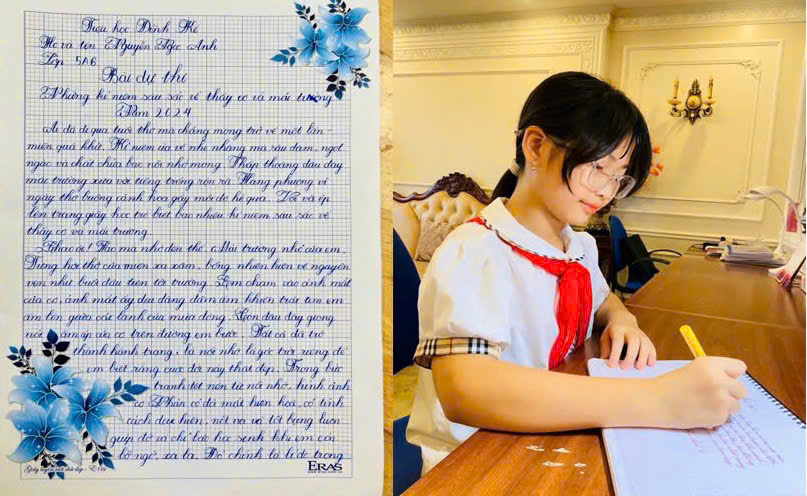 Tiểu học Dĩnh Kế
Họ và tên Nguyễn Ngọc Anh
Lớp 5A6
Bài dự thi
Những kỉ niệm sâu sắc về thầy cô và mái trường
Năm 2024
Ai đã đi qua tuổi thơ mà chẳng mong trở về một lần
miền quá khứ. Kỉ niệm ùa về nhẹ nhàng mà sâu đậm, ngọt
ngào và chất chứa bao nỗi nhớ mong. Thấp thoáng đâu đây
mái trường xưa với tiếng trống rộn rã. Hàng phượng vĩ
ngày thơ buông cánh hoa gầy mỗi độ hè qua. Rồi và ép
lên trang giấy học trò biết bao nhiêu kỉ niệm sâu sắc về
thầy cô và mái trường.
Chao ôi! Sao mà nhớ đến thế. Mái trường nhỏ của em.
Từng hơi thở của miền xa xăm, bỗng nhiên hiện về nguyên
vẹn như buổi đầu tiên tới trường. Em chạm vào ánh mắt
của cô, ánh mắt ấy dịu dàng đằm ấm khiến trái tim em
ấm lên giữa cái lạnh của mùa đông. Còn đâu đây giọng
nói ấm áp của cô trên đường em bước. Tất cả đã trở
thành hành trang, là nơi nhỏ là góc trời vương để
em biết rằng cuộc đời này thật đẹp. Trong bức
tranh dệt nên từ nỗi nhớ, hình ảnh
cô Phần có đôi mắt hiền hòa, cô tính
cách dịu hiền, nết na và tốt bụng luôn
giúp đỡ và chỉ bảo học sinh khi em còn
bỡ ngỡ, xa lạ. Đó chính là lí do trong
Giấy luyện viết chữ đẹp -
ERAS